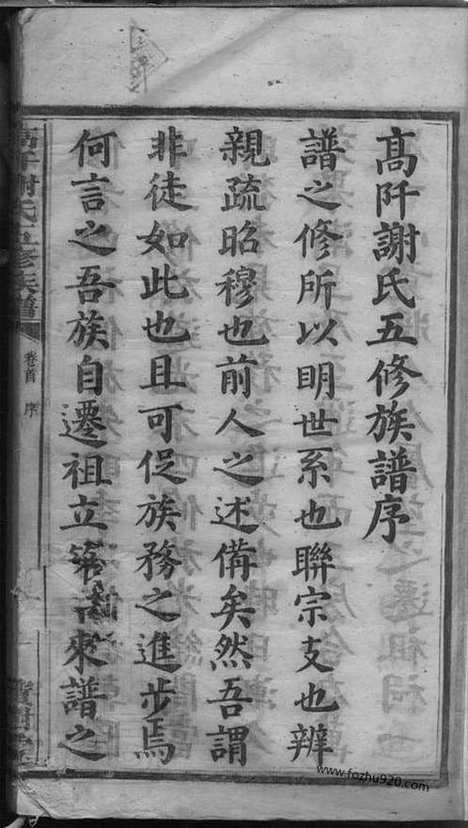 高阡謝氏五修族譜序
譜之修所以明世系也聯宗支也辨
親疏昭穆也前人之述備矣然吾謂
非徒如此也且可促族務之進步焉
何言之吾族自遷祖立
來譜之
謝氏五修族譜
卷首
序
www.fozhu920.com